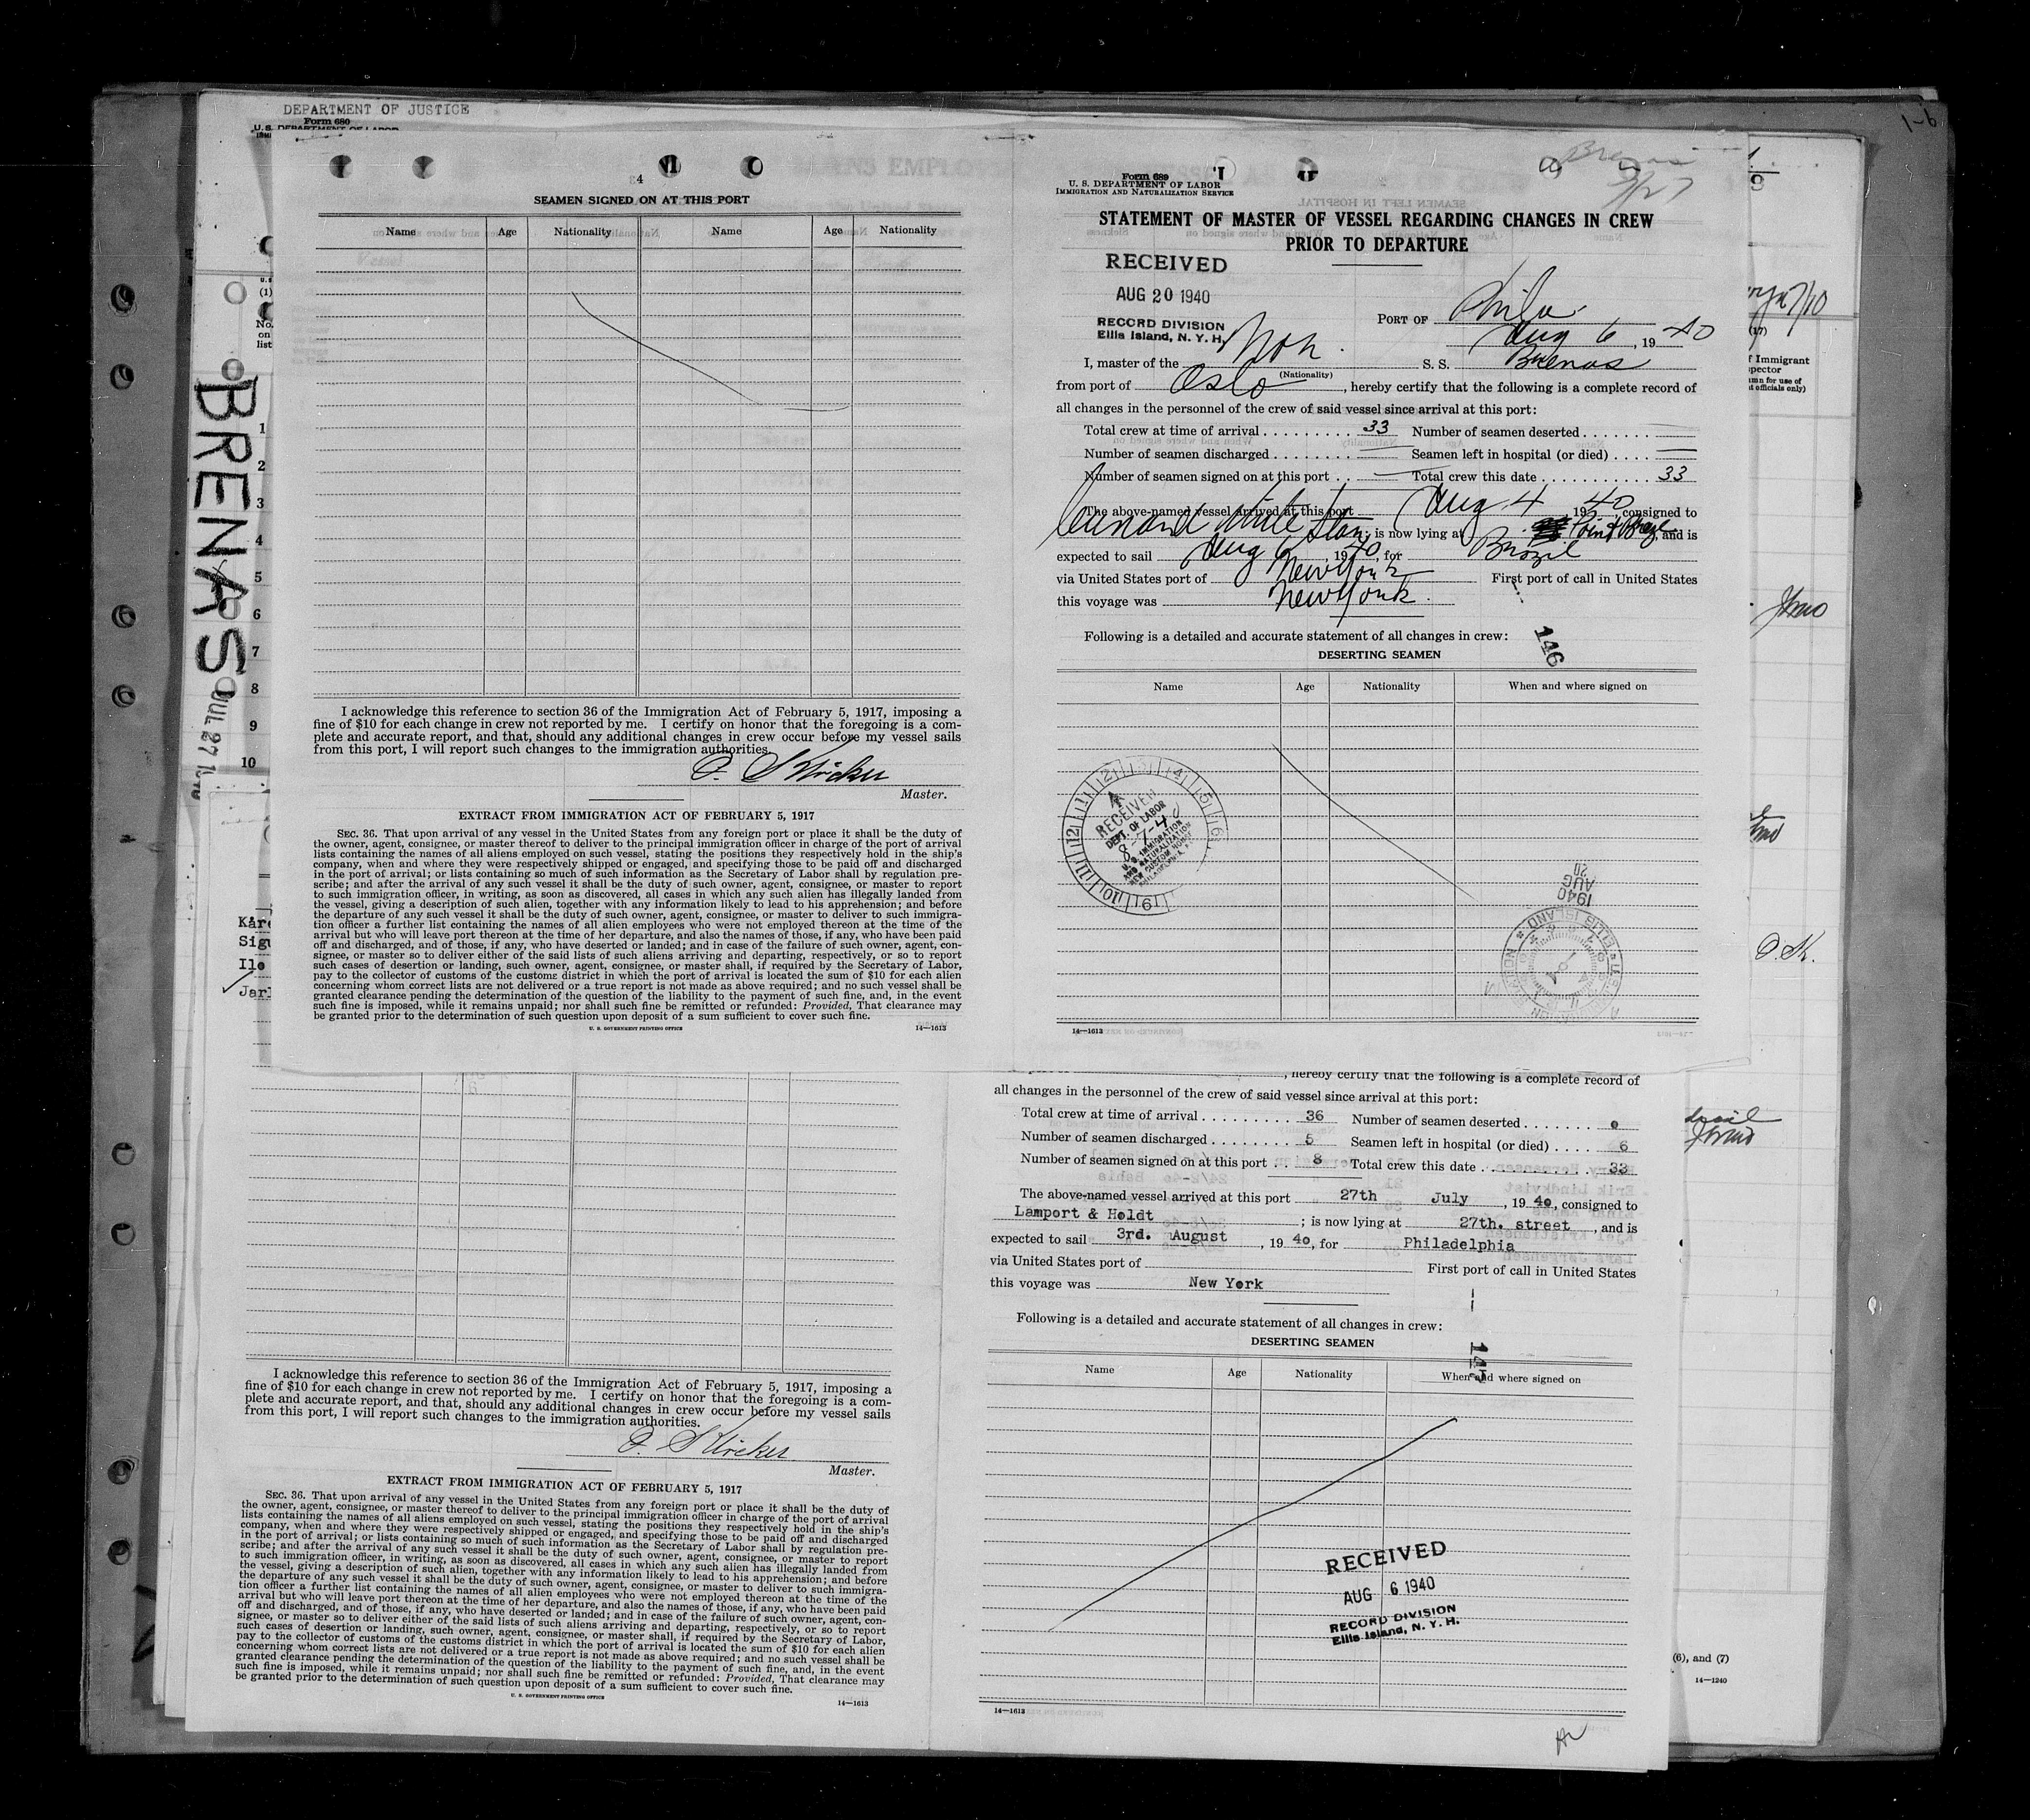 DEPARTMENT OF JUSTICE
Form 680
U. S. DEPARTMENT OF LABOR
1-6
BRENAS
JUL 27
No.
on
list
1
2
3
4
5
6
7
8
9
10
Kåre
Ilo
4
SEAMEN SIGNED ON AT THIS PORT
Name Age Nationality Name Age Nationality
I acknowledge this reference to section 36 of the Immigration Act of February 5, 1917, imposing a
fine of $10 for each change in crew not reported by me. I certify on honor that the foregoing is a com-
plete and accurate report, and that, should any additional changes in crew occur before my vessel sails
from this port, I will report such changes to the immigration authorities.
Master.
EXTRACT FROM IMMIGRATION ACT OF FEBRUARY 5, 1917
SEC. 36. That upon arrival of any vessel in the United States from any foreign port or place it shall be the duty of
the owner, agent, consignee, or master thereof to deliver to the principal immigration officer in charge of the port of arrival
lists containing the names of all aliens employed on such vessel, stating the positions they respectively hold in the ship's
company, when and where they were respectively shipped or engaged, and specifying those to be paid off and discharged
in the port of arrival; or lists containing so much of such information as the Secretary of Labor shall by regulation pre-
scribe; and after the arrival of any such vessel it shall be the duty of such owner, agent, consignee, or master to report
to such immigration officer, in writing, as soon as discovered, all cases in which any such alien has illegally landed from
the vessel, giving a description of such alien, together with any information likely to lead to his apprehension; and before
the departure of any such vessel it shall be the duty of such owner, agent, consignee, or master to deliver to such immigra-
tion officer a further list containing the names of all alien employees who were not employed thereon at the time of the
arrival but who will leave port thereon at the time of her departure, and also the names of those, if any, who have been paid
off and discharged, and of those, if any, who have deserted or landed; and in case of the failure of such owner, agent, con-
signee, or master so to deliver either of the said lists of such aliens arriving and departing, respectively, or so to report
such cases of desertion or landing, such owner, agent, consignee, or master shall, if required by the Secretary of Labor,
pay to the collector of customs of the customs district in which the port of arrival is located the sum of $10 for each alien
concerning whom correct lists are not delivered or a true report is not made as above required; and no such vessel shall be
granted clearance pending the determination of the question of the liability to the payment of such fine, and, in the event
such fine is imposed, while it remains unpaid; nor shall such fine be remitted or refunded: Provided, That clearance may
be granted prior to the determination of such question upon deposit of a sum sufficient to cover such fine.
U. S. GOVERNMENT PRINTING OFFICE 14—1613
Form 689
U. S. DEPARTMENT OF LABOR
IMMIGRATION AND NATURALIZATION SERVICE
STATEMENT OF MASTER OF VESSEL REGARDING CHANGES IN CREW
PRIOR TO DEPARTURE
RECEIVED
AUG 20 1940
RECORD DIVISION
Ellis Island, N. Y. H.
PORT OF Phila.
Aug 6, 1940
I, master of the Nor. S. S. Brenas
(Nationality)
from port of Oslo, hereby certify that the following is a complete record of
all changes in the personnel of the crew of said vessel since arrival at this port:
Total crew at time of arrival 33 Number of seamen deserted
Number of seamen discharged Seamen left in hospital (or died)
Number of seamen signed on at this port Total crew this date 33
The above-named vessel arrived at this port Aug 4 1940, consigned to
Cunard White Star; is now lying at Point Breeze, and is
expected to sail Aug 6, 1940, for Brazil
via United States port of New York First port of call in United States
this voyage was New York.
Following is a detailed and accurate statement of all changes in crew:
146
DESERTING SEAMEN
Name Age Nationality When and where signed on
RECEIVED
DEPT. OF LABOR
8-7-40
U.S. IMMIGRATION
AND NATURALIZATION
NEW CUSTOM HOUSE
PHILADELPHIA, PA.
1940
AUG
20
ELLIS ISLAND
14—1613
(17)
Immigrant
O.K.
, hereby certify that the following is a complete record of
all changes in the personnel of the crew of said vessel since arrival at this port:
Total crew at time of arrival 36 Number of seamen deserted 0
Number of seamen discharged 5 Seamen left in hospital (or died) 6
Number of seamen signed on at this port 8 Total crew this date 33
The above-named vessel arrived at this port 27th July, 1940, consigned to
Lamport & Holdt; is now lying at 27th. street, and is
expected to sail 3rd. August, 1940, for Philadelphia
via United States port of First port of call in United States
this voyage was New York
Following is a detailed and accurate statement of all changes in crew:
DESERTING SEAMEN
Name Age Nationality When and where signed on
RECEIVED
AUG 6 1940
RECORD DIVISION
Ellis Island, N. Y. H.
14—1613
(6), and (7)
14—1240
I acknowledge this reference to section 36 of the Immigration Act of February 5, 1917, imposing a
fine of $10 for each change in crew not reported by me. I certify on honor that the foregoing is a com-
plete and accurate report, and that, should any additional changes in crew occur before my vessel sails
from this port, I will report such changes to the immigration authorities.
Master.
EXTRACT FROM IMMIGRATION ACT OF FEBRUARY 5, 1917
SEC. 36. That upon arrival of any vessel in the United States from any foreign port or place it shall be the duty of
the owner, agent, consignee, or master thereof to deliver to the principal immigration officer in charge of the port of arrival
lists containing the names of all aliens employed on such vessel, stating the positions they respectively hold in the ship's
company, when and where they were respectively shipped or engaged, and specifying those to be paid off and discharged
in the port of arrival; or lists containing so much of such information as the Secretary of Labor shall by regulation pre-
scribe; and after the arrival of any such vessel it shall be the duty of such owner, agent, consignee, or master to report
to such immigration officer, in writing, as soon as discovered, all cases in which any such alien has illegally landed from
the vessel, giving a description of such alien, together with any information likely to lead to his apprehension; and before
the departure of any such vessel it shall be the duty of such owner, agent, consignee, or master to deliver to such immigra-
tion officer a further list containing the names of all alien employees who were not employed thereon at the time of the
arrival but who will leave port thereon at the time of her departure, and also the names of those, if any, who have been paid
off and discharged, and of those, if any, who have deserted or landed; and in case of the failure of such owner, agent, con-
signee, or master so to deliver either of the said lists of such aliens arriving and departing, respectively, or so to report
such cases of desertion or landing, such owner, agent, consignee, or master shall, if required by the Secretary of Labor,
pay to the collector of customs of the customs district in which the port of arrival is located the sum of $10 for each alien
concerning whom correct lists are not delivered or a true report is not made as above required; and no such vessel shall be
granted clearance pending the determination of the question of the liability to the payment of such fine, and, in the event
such fine is imposed, while it remains unpaid; nor shall such fine be remitted or refunded: Provided, That clearance may
be granted prior to the determination of such question upon deposit of a sum sufficient to cover such fine.
U. S. GOVERNMENT PRINTING OFFICE 14—1613